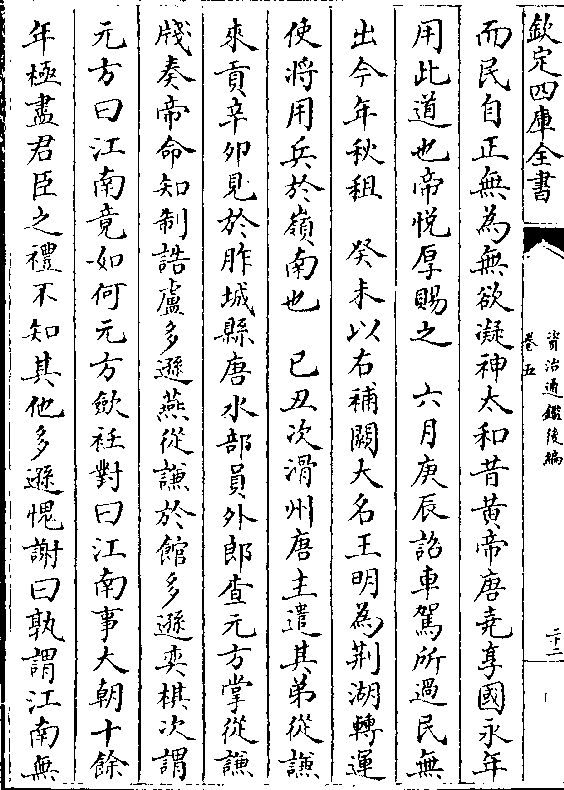 欽定四庫全書
資治通鑑後編
卷五
二十二
而民自正無為無欲凝神太和昔黄帝唐堯享國永年
用此道也帝悦厚賜之　六月庚辰詔車駕所過民無
出今年秋租　癸未以右補闕大名王明為荆湖轉運
使将用兵於嶺南也　已丑次滑州唐主遣其弟從謙
來貢辛卯見於胙城縣唐水部員外郎查元方掌從謙
牋奏帝命知制誥盧多遜燕從謙於館多遜奕棋次謂
元方曰江南竟如何元方歛衽對曰江南事大朝十餘
年極盡君臣之禮不知其他多遜愧謝曰孰謂江南無